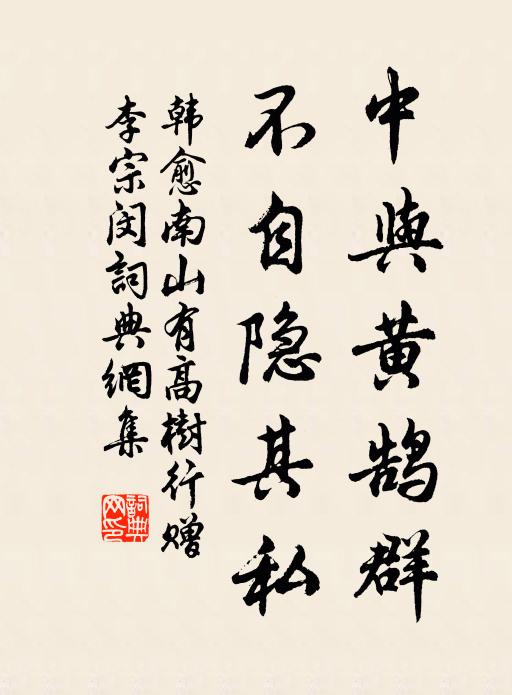 中與黄鹄群
不自隐其私
韩愈南山有高樹行赠
李宗闵詞典網集
詞典
网印